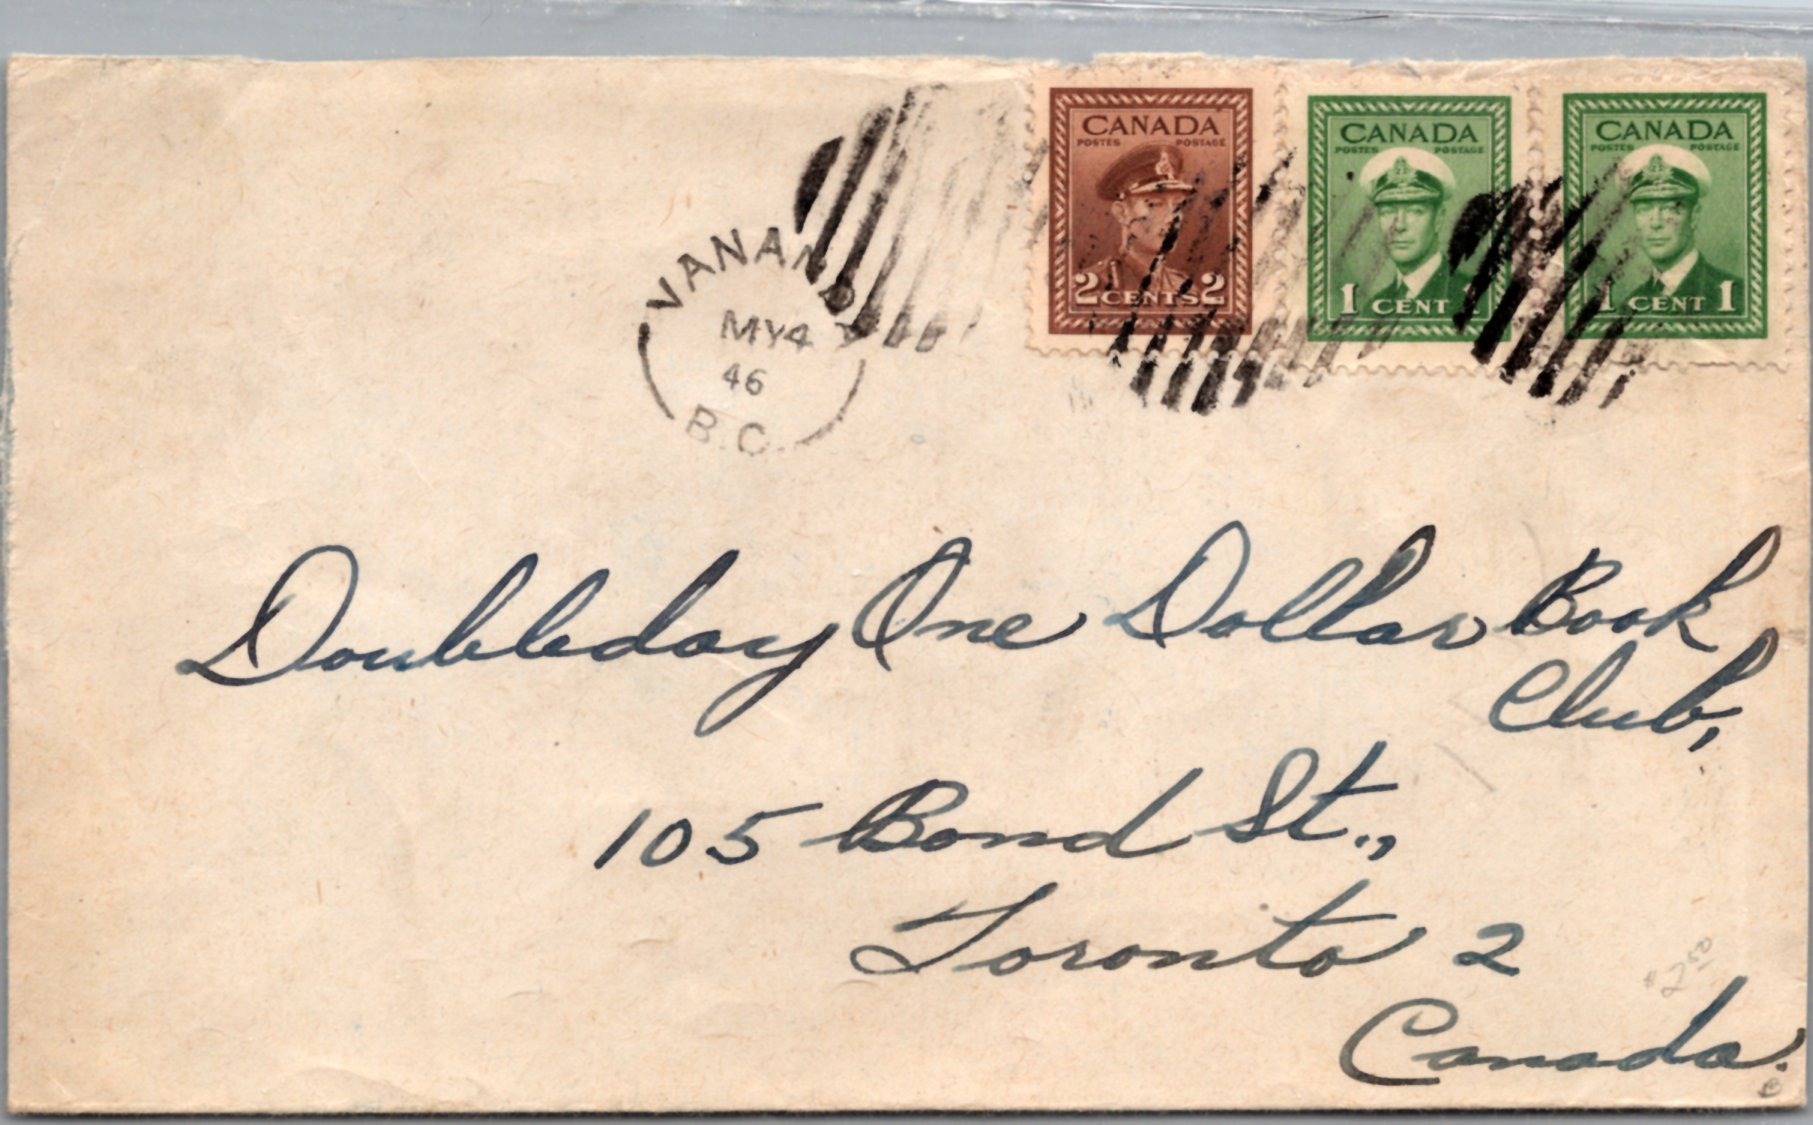 CANADA
POSTES POSTAGE
2 CENTS 2
CANADA
POSTES POSTAGE
1 CENT
CANADA
POSTES POSTAGE
1 CENT 1
VANANDA
MY 4
46
B.C.
Doubleday One Dollar Book
Club,
105 Bond St.,
Toronto 2
$2.50
Canada.